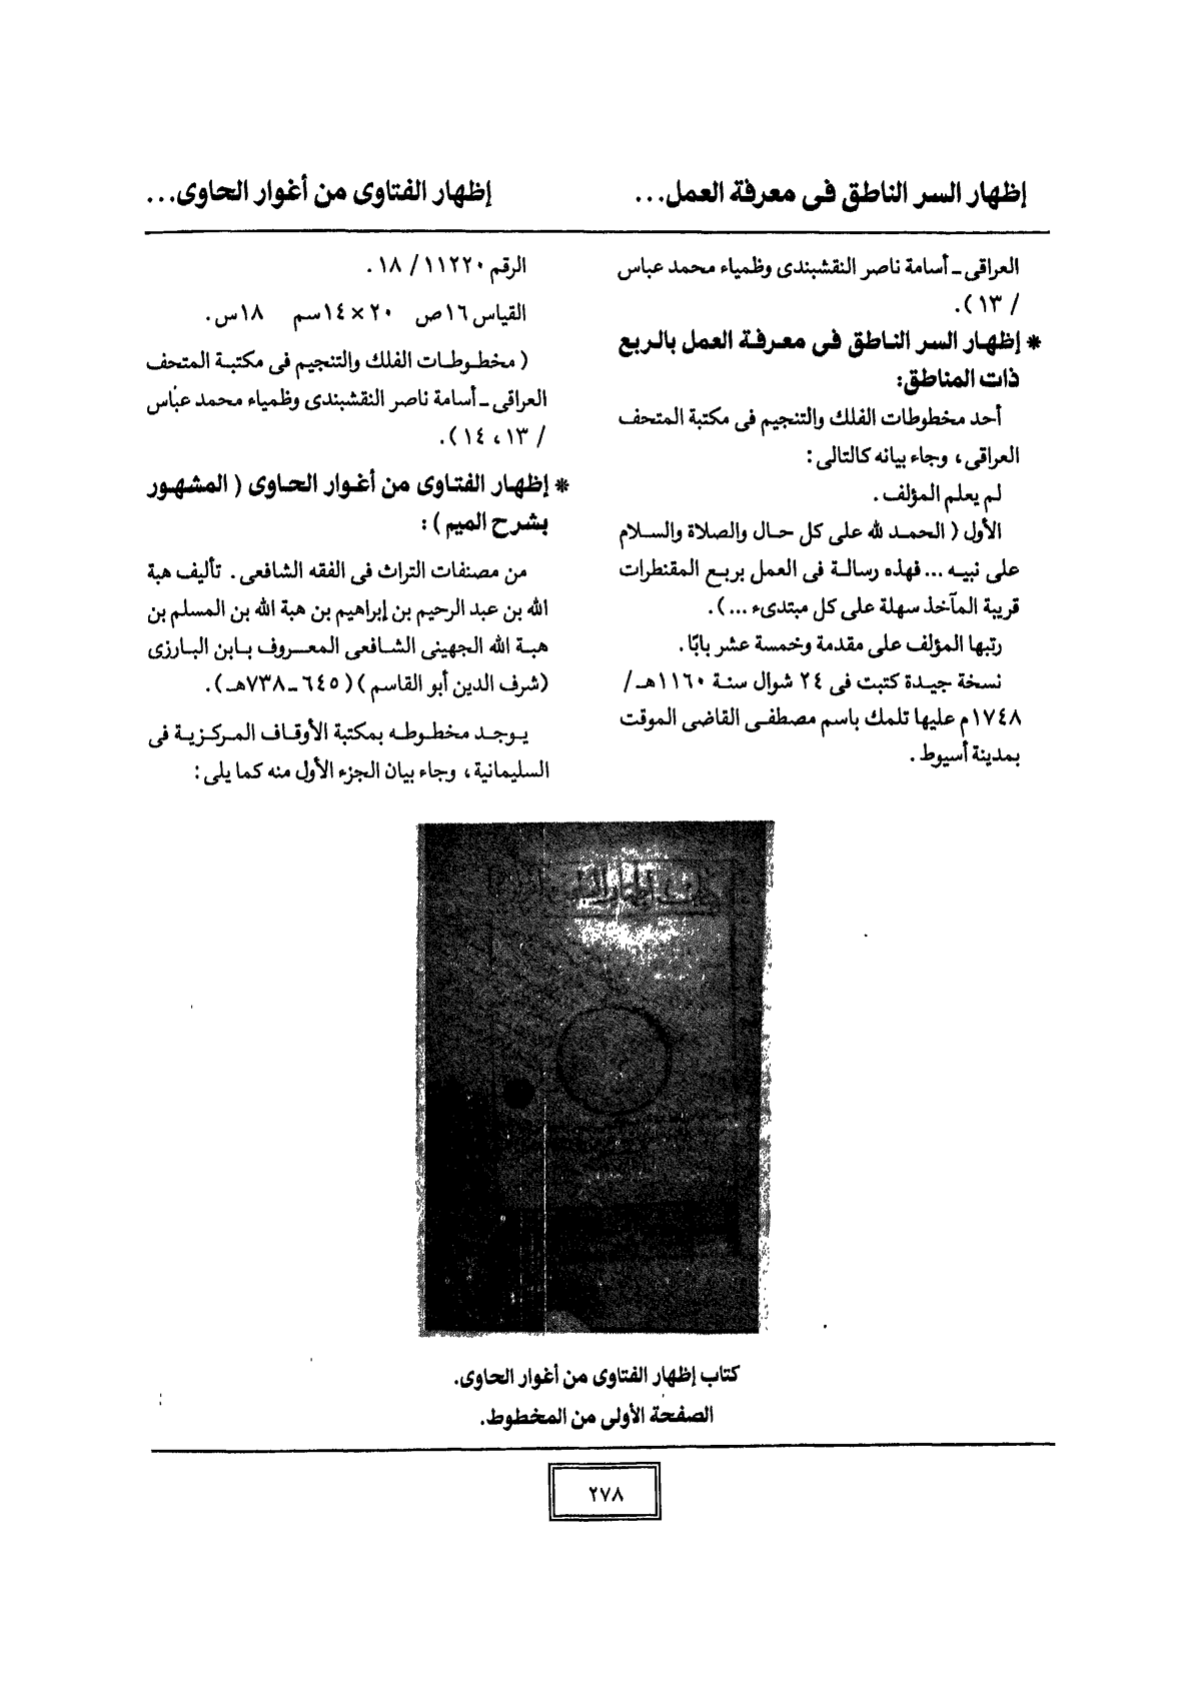 إظهار السر الناطق فى معرفة العمل...
إظهار الفتاوى من أغوار الحاوى...
العراقى ـ أسامة ناصر النقشبندى وظمياء محمد عباس
/ ١٣ ).
* إظهـار السر النـاطق فى معـرفـة العمل بالـربع
ذات المناطق:
أحد مخطوطات الفلك والتنجيم فى مكتبة المتحف
العراقى، وجاء بيانه كالتالى:
لم يعلم المؤلف.
الأول ( الحمـد لله على كل حـال والصلاة والسـلام
على نبيـه ... فهذه رسالـة فى العمل بربـع المقنطرات
قريبة المآخذ سهلة على كل مبتدىء ... ).
رتبها المؤلف على مقدمة وخمسة عشر بابًا.
نسخة جيـدة كتبت فى ٢٤ شوال سنـة ١١٦٠هـ /
١٧٤٨م عليها تلمك باسم مصطفـى القاضى الموقت
بمدينة أسيوط.
الرقم ١١٢٢٠ / ١٨.
القياس ١٦ص ٢٠ × ١٤سم ١٨س.
( مخطـوطـات الفلك والتنجيم فى مكتبـة المتحف
العراقى ـ أسامة ناصر النقشبندى وظمياء محمد عباس
/ ١٣، ١٤).
* إظهـار الفتـاوى من أغـوار الحـاوى ( المشهـور
بشرح الميم ):
من مصنفات التراث فى الفقه الشافعى. تأليف هبة
الله بن عبد الرحيم بن إبراهيم بن هبة الله بن المسلم بن
هبـة الله الجهينى الشـافعى المعـروف بـابن البـارزى
(شرف الدين أبو القاسم ) ( ٦٤٥ ـ ٧٣٨هـ).
يـوجـد مخطـوطـه بمكتبة الأوقـاف المـركـزيـة فى
السليمانية، وجاء بيان الجزء الأول منه كما يلى:
كتاب إظهار الفتاوى من أغوار الحاوى.
الصفحة الأولى من المخطوط.
٢٧٨